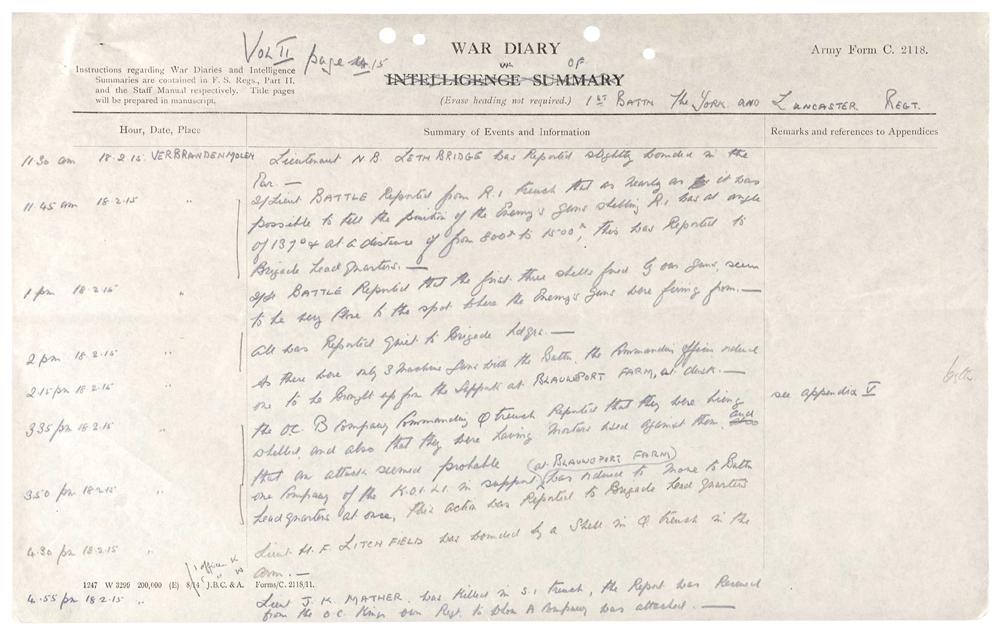 VOL II page 15
WAR DIARY
OF
INTELLIGENCE SUMMARY
(Erase heading not required.)
Army Form C. 2118.
Instructions regarding War Diaries and Intelligence
Summaries are contained in F. S. Regs., Part II.
and the Staff Manual respectively. Title pages
will be prepared in manuscript.
1st BATTN The YORK AND LANCASTER REGT.
Hour, Date, Place
Summary of Events and Information
Remarks and references to Appendices
11.30 am 18.2.15 VERBRANDENMOLEN Lieutenant N.B. LETHBRIDGE was Reported slightly wounded in the
Ear. —
11.45 am 18.2.15 " 2/Lieut BATTLE Reported from R.1 trench that as nearly as it was
possible to tell the position of the Enemy's guns shelling R.1 was at angle
of 137° & at a distance of from 800x to 1500x, this was Reported to
Brigade Head Quarters. —
1 pm 18.2.15 " 2/Lt BATTLE Reported that the first three shells fired by our guns, seem
to be very close to the spot where the Enemy's guns were firing from. —
2 pm 18.2.15 " All was Reported Quiet to Brigade Hdqrs. —
2.15 pm 18.2.15 " As there were only 3 Machine Guns with the Battn. the Commanding Officer ordered
one to be brought up from the Supports at BLAUWEPORT FARM, at dusk. —
see appendix V
3.35 pm 18.2.15 " the O.C. B Company Commanding Q trench Reported that they were being
shelled, and also that they were having Mortars used against them,
that an attack seemed probable
3.50 pm 18.2.15 " one Company of the K.O.Y.L.I. in support (at BLAUWEPORT FARM) was ordered to move to Battn
Head quarters at once, this action was Reported to Brigade Head Quarters
4.30 pm 18.2.15 " Lieut H.F. LITCHFIELD was wounded by a Shell in Q trench in the
arm. —
1 officer K
1247 W 3299 200,000 (E) 8/14 J.B.C. & A. Forms/C. 2118/11.
4.55 pm 18.2.15 " Lieut J.K. MATHER. was Killed in S.1 trench, the Report was Received
from the O.C. Kings own Regt. to whom A Company was attached. —